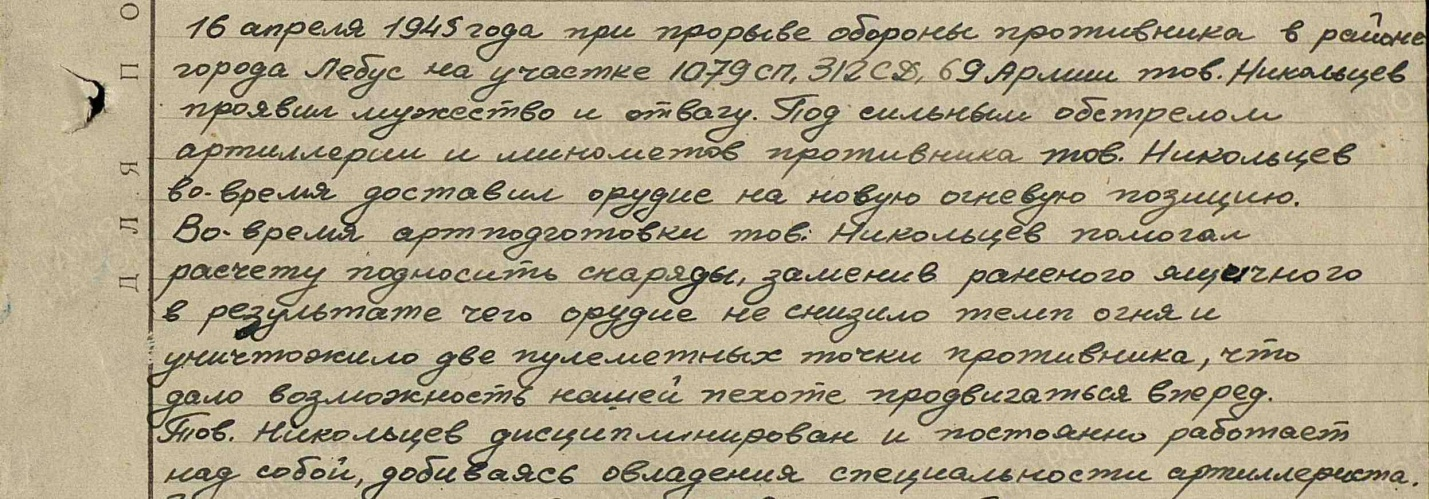 16 апреля 1945 года при прорыве обороны противника в районе
города Лебус на участке 1079 СП, 312 СД, 69 Армии тов. Никольцев
проявил мужество и отвагу. Под сильным обстрелом
артиллерии и минометов противника тов. Никольцев
во-время доставил орудие на новую огневую позицию.
Во-время артподготовки тов. Никольцев помогал
расчету подносить снаряды, заменив раненого ящичного
в результате чего орудие не снизило темп огня и
уничтожило две пулеметных точки противника, что
дало возможность нашей пехоте продвигаться вперед.
Тов. Никольцев дисциплинирован и постоянно работает
над собой, добиваясь овладения специальности артиллериста.
ДЛЯ ПО